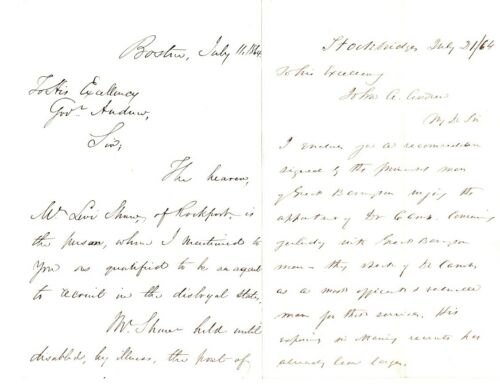 Boston, July 11. 1864.
To His Excellency
Gov.r Andrew,
Sir,
The bearer,
Mr. Levi Shaw, of Rockport, is
the person, whom I mentioned to
you as qualified to be an agent
to recruit in the disloyal states.
Mr. Shaw held until
disabled, by illness, the post of
Stockbridge July 21/64
To his Excellency
John A. Andrew
My D. Sir
I enclose you a recommendation
signed by the principal men
of Great Barrington urging the
appointment of Dr Camp. Concurring
perfectly with Great Barrington
men - they speak of Dr Camp
as a most efficient &
man for this service. His
in raising recruits has
already been large.